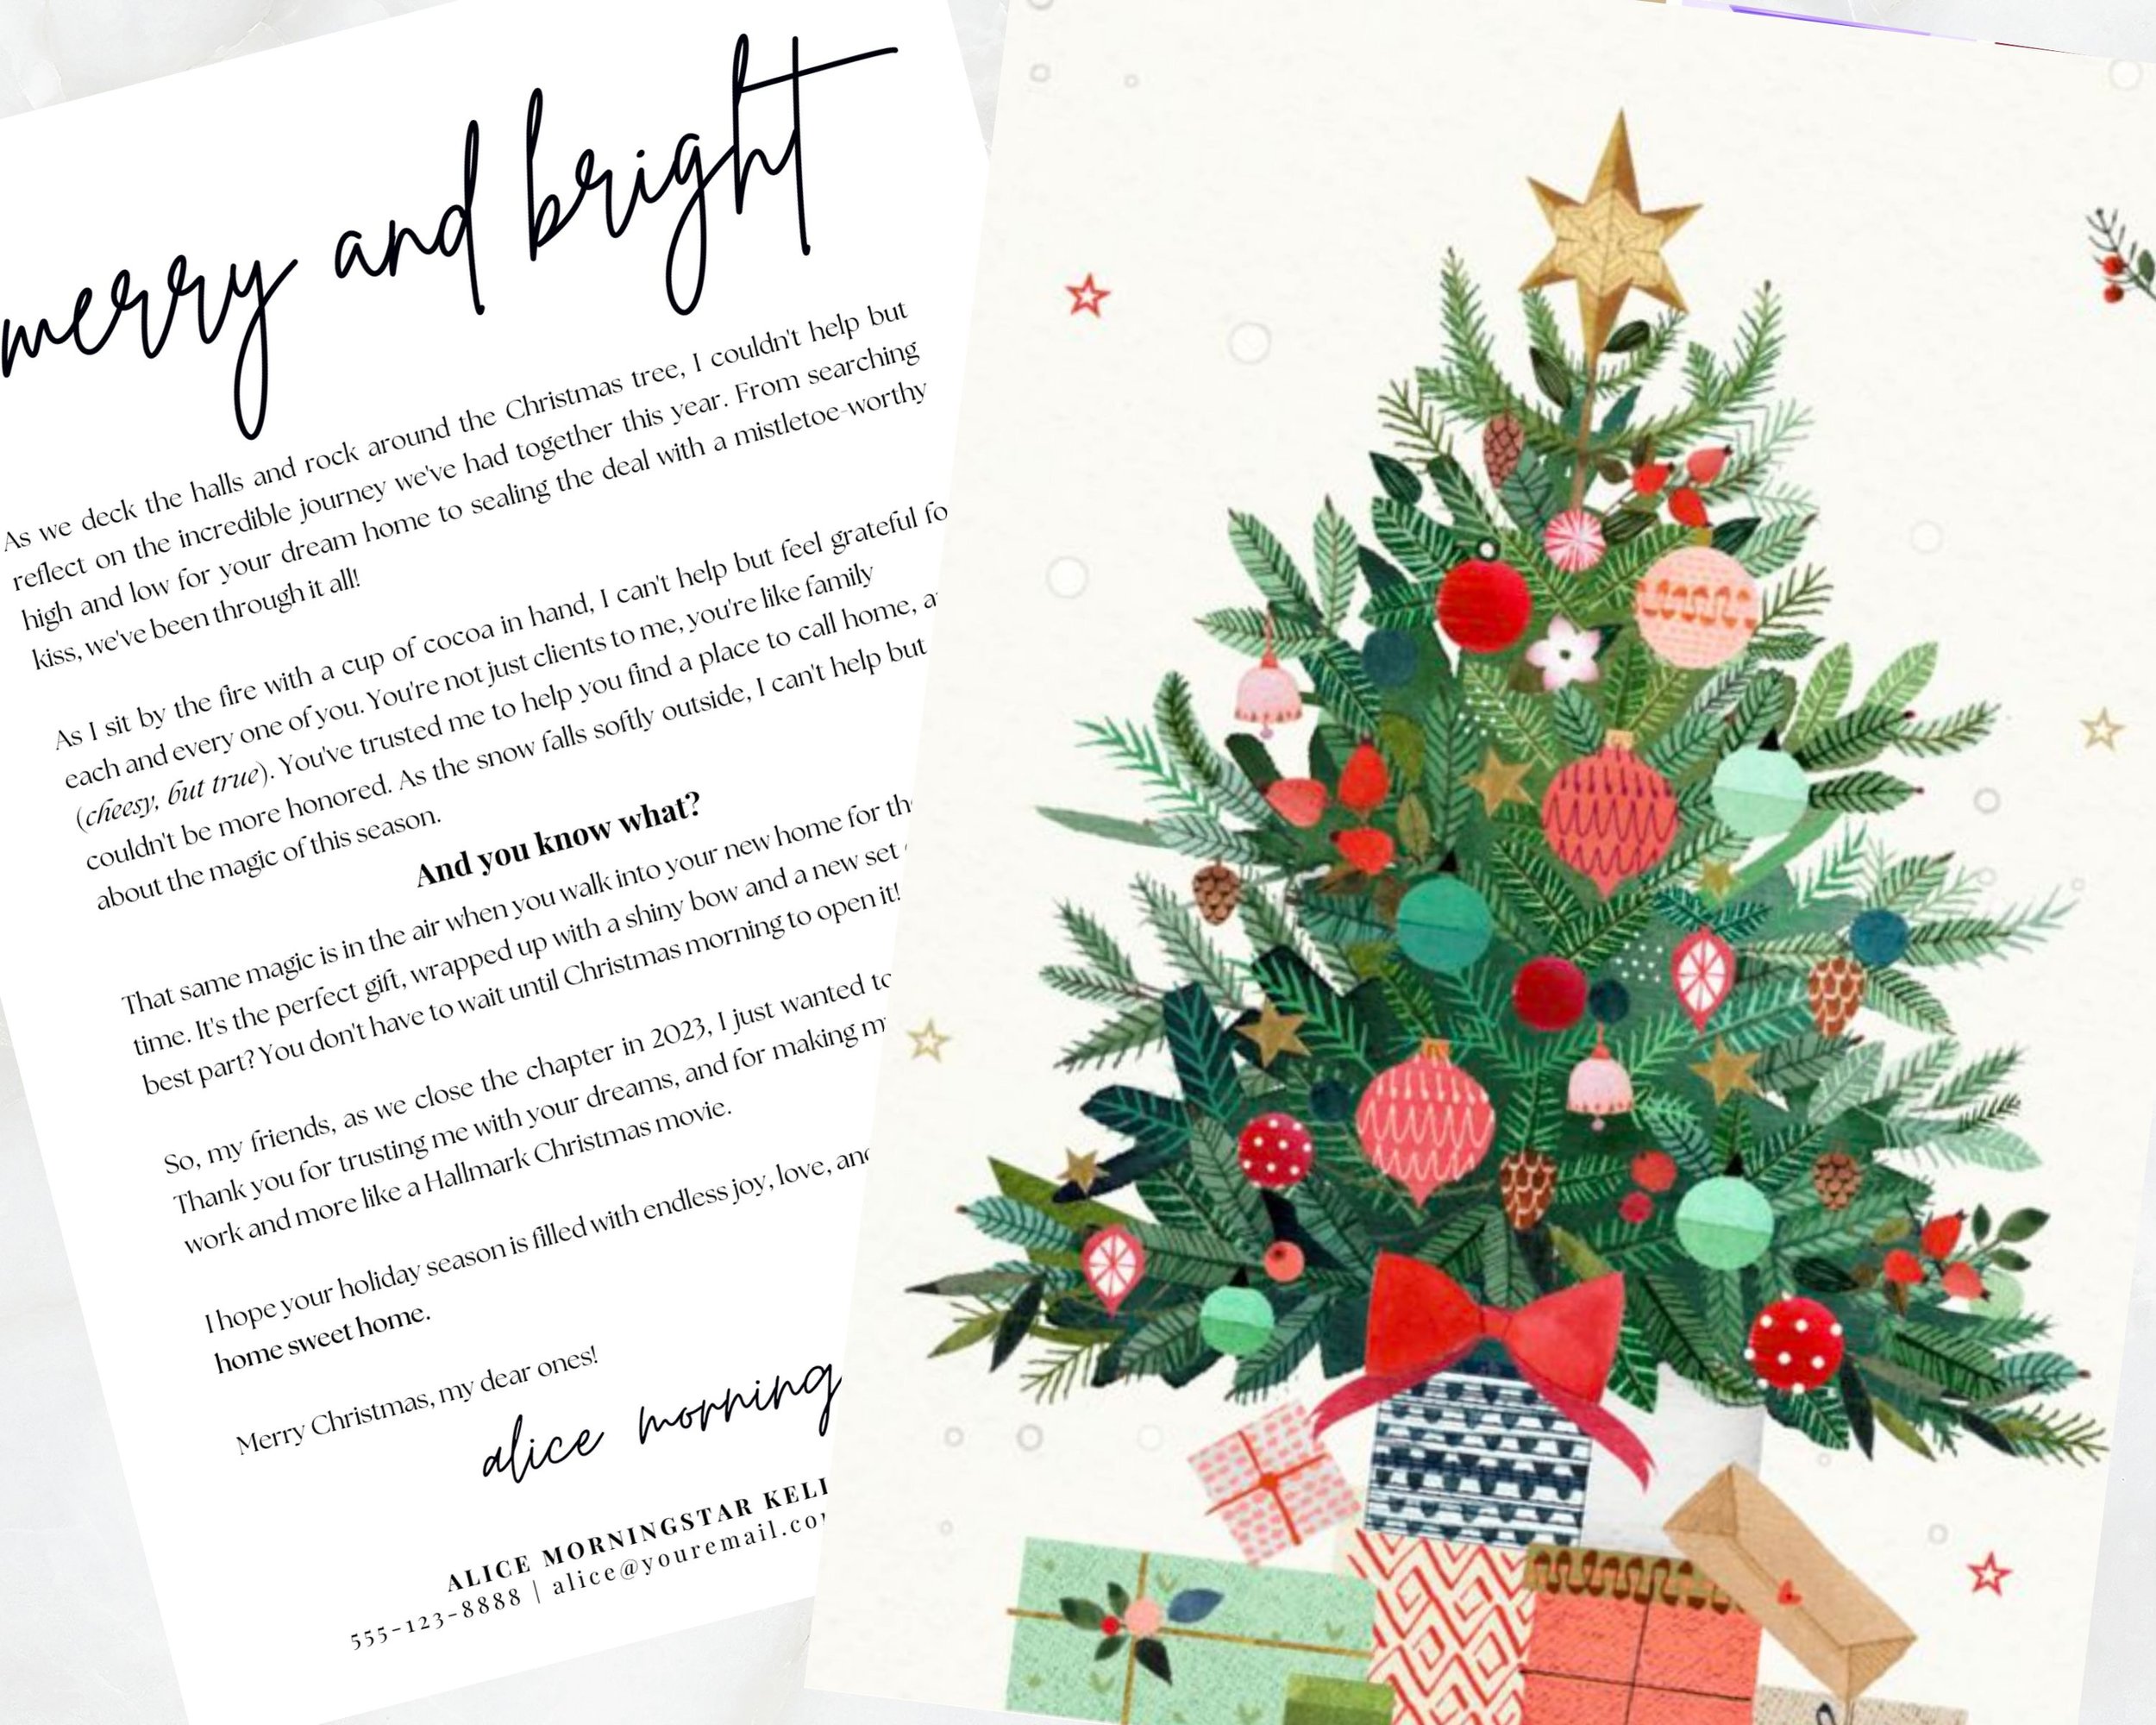 merry and bright
As we deck the halls and rock around the Christmas tree, I couldn't help but
reflect on the incredible journey we've had together this year. From searching
high and low for your dream home to sealing the deal with a mistletoe-worthy
kiss, we've been through it all!
As I sit by the fire with a cup of cocoa in hand, I can't help but feel grateful fo
each and every one of you. You're not just clients to me, you're like family
(cheesy, but true). You've trusted me to help you find a place to call home, a
couldn't be more honored. As the snow falls softly outside, I can't help but
about the magic of this season.
And you know what?
That same magic is in the air when you walk into your new home for th
time. It's the perfect gift, wrapped up with a shiny bow and a new set
best part? You don't have to wait until Christmas morning to open it!
So, my friends, as we close the chapter in 2023, I just wanted to
Thank you for trusting me with your dreams, and for making m
work and more like a Hallmark Christmas movie.
I hope your holiday season is filled with endless joy, love, and
home sweet home.
Merry Christmas, my dear ones!
alice morning
ALICE MORNINGSTAR KELL
555-123-8888 | alice@youremail.co